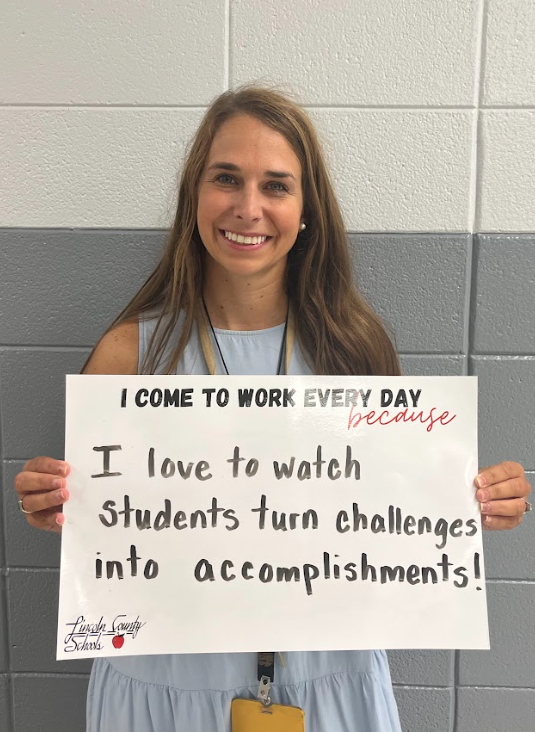 I COME TO WORK EVERY DAY
because
I love to watch
students turn challenges
into accomplishments!
Lincoln County
Schools